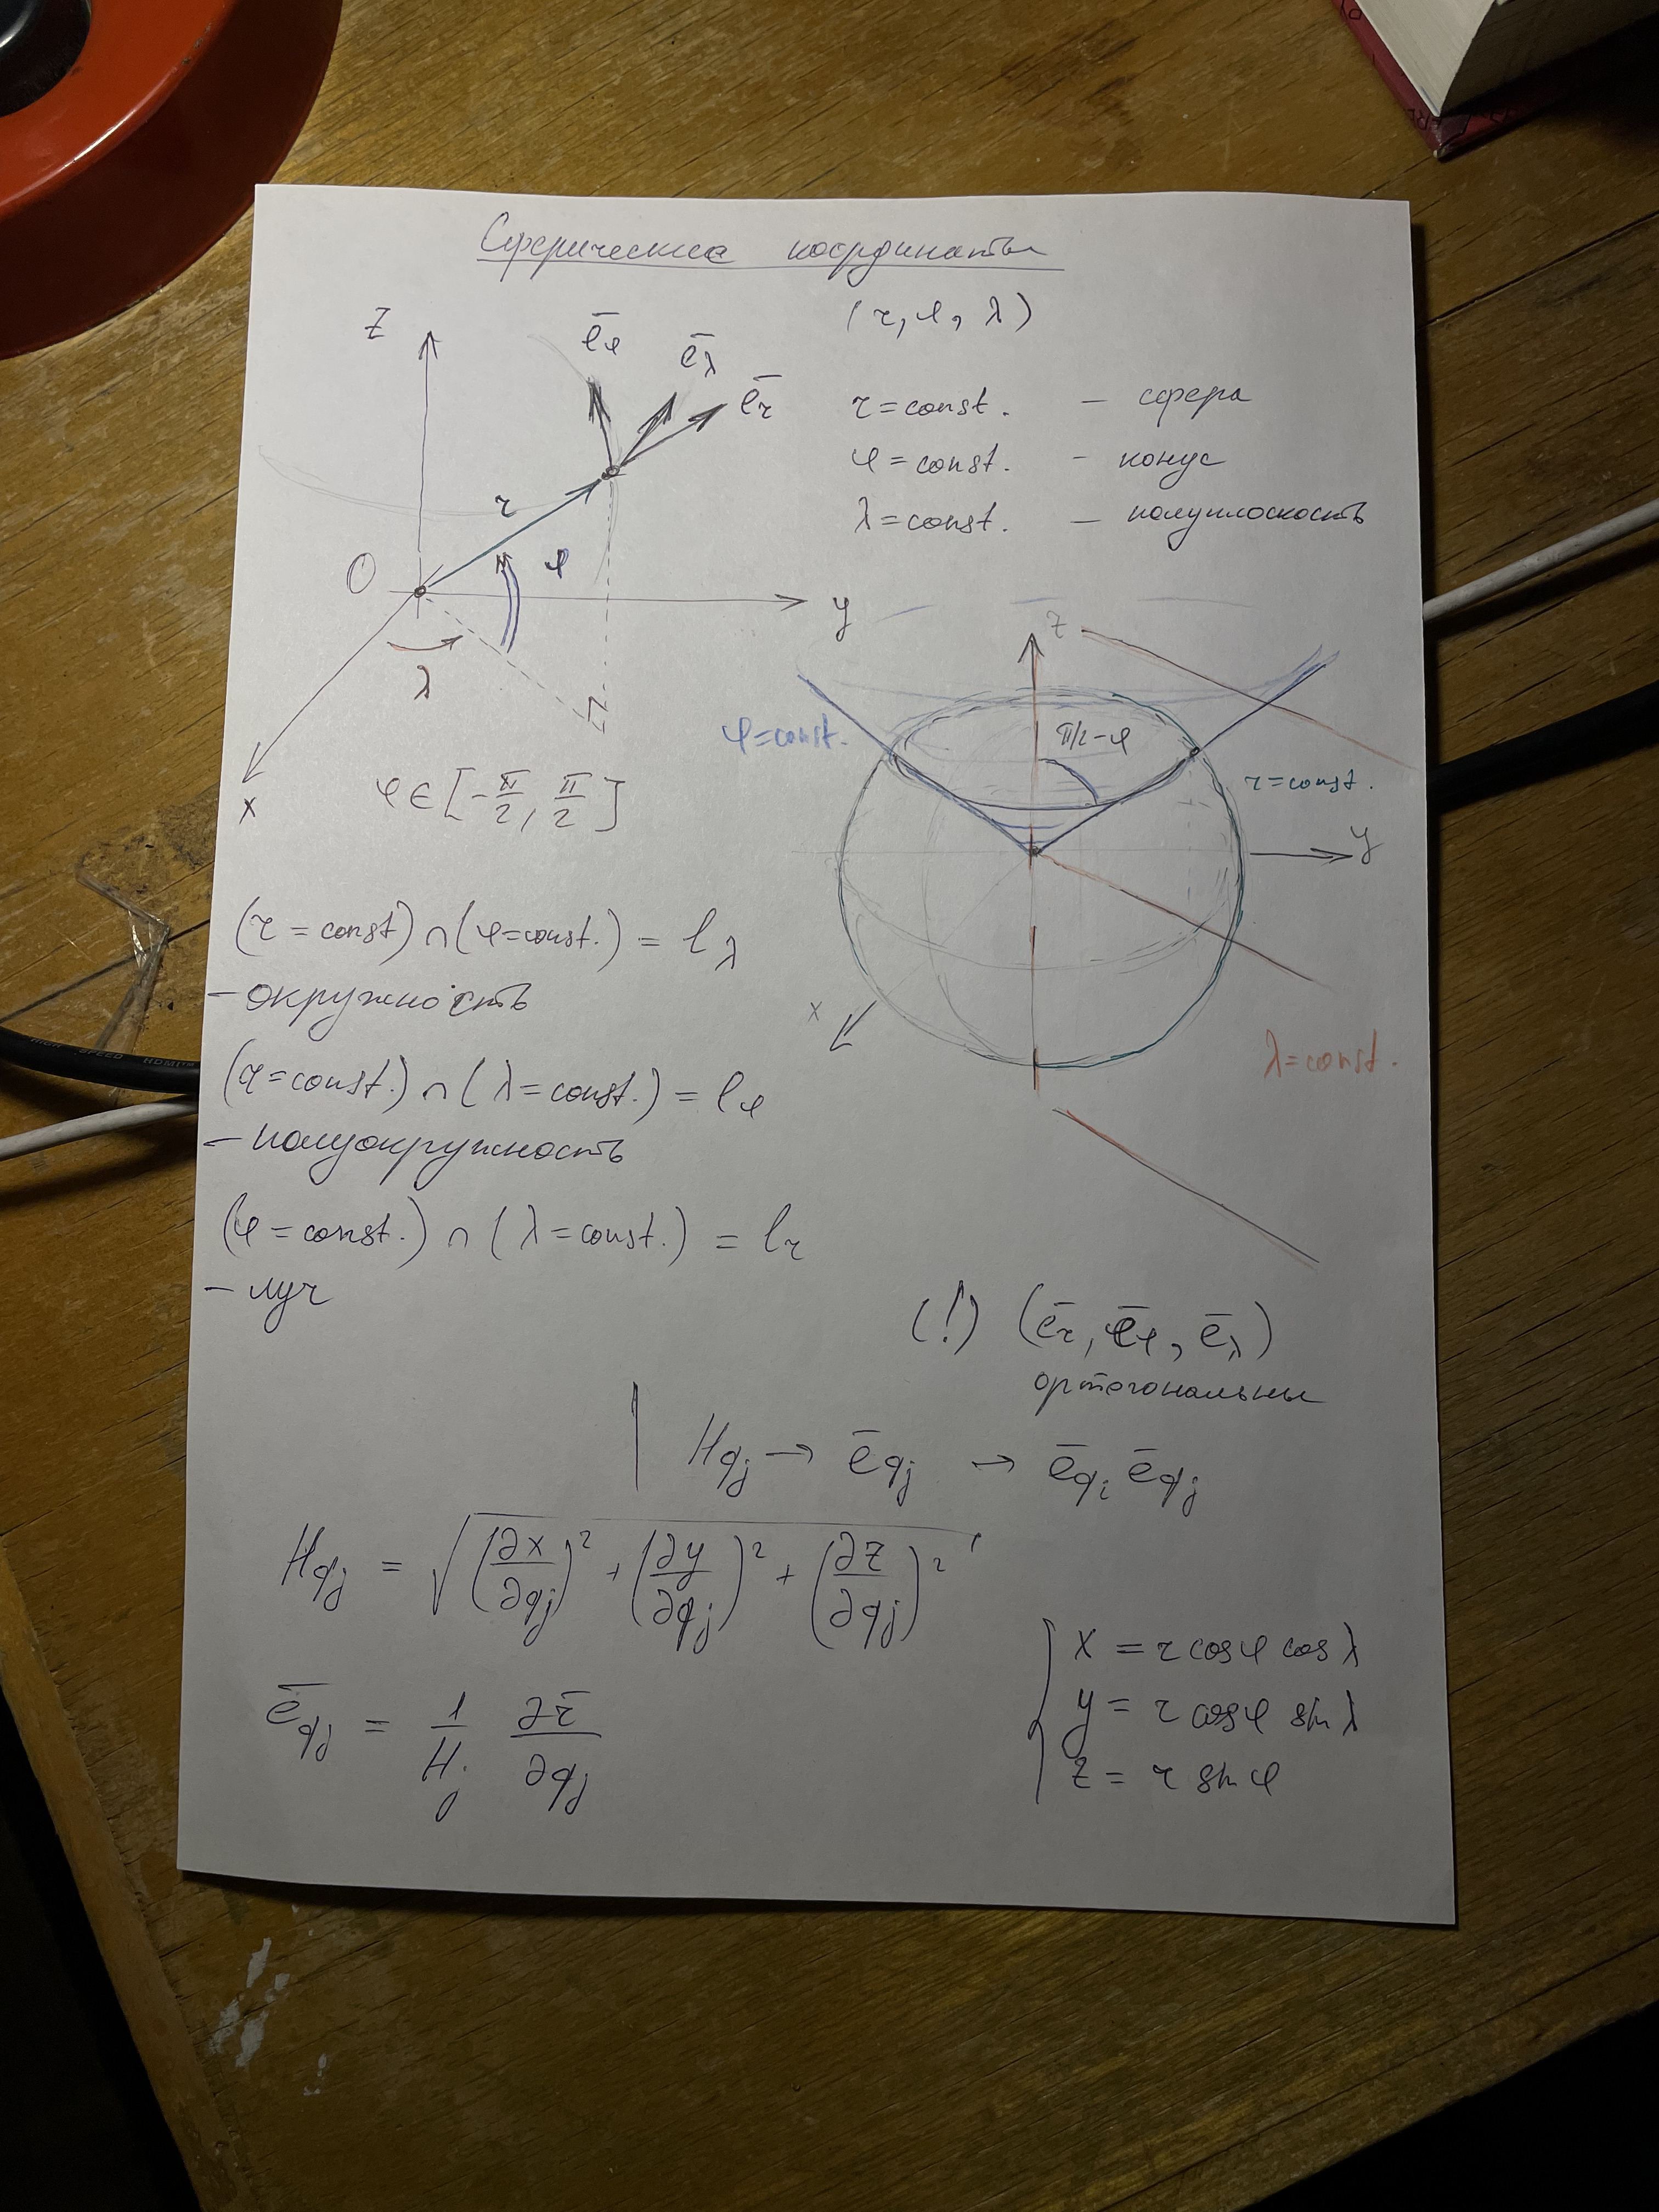 Сферические координаты
(r, φ, λ)
z
e̅φ
e̅λ
e̅r
r = const. – сфера
φ = const. – конус
λ = const. – полуплоскость
r
φ
O
y
λ
x
φ ∈ [-π/2, π/2]
z
φ=const.
π/2-φ
r=const.
y
x
λ=const.
(r = const) ∩ (φ=const.) = l_λ
– окружность
(r=const.) ∩ (λ=const.) = l_φ
– полуокружность
(φ=const.) ∩ (λ=const.) = l_r
– луч
(!) (e̅r, e̅φ, e̅λ)
ортогональны
| H_qj → e̅_qj → e̅_qi e̅_qj
H_qj = √((∂x/∂qj)² + (∂y/∂qj)² + (∂z/∂qj)²)
e̅_qj = 1/H_j ∂r̅/∂qj
x = r cosφ cosλ
y = r cosφ sinλ
z = r sinφ
HIGH SPEED HDMI™